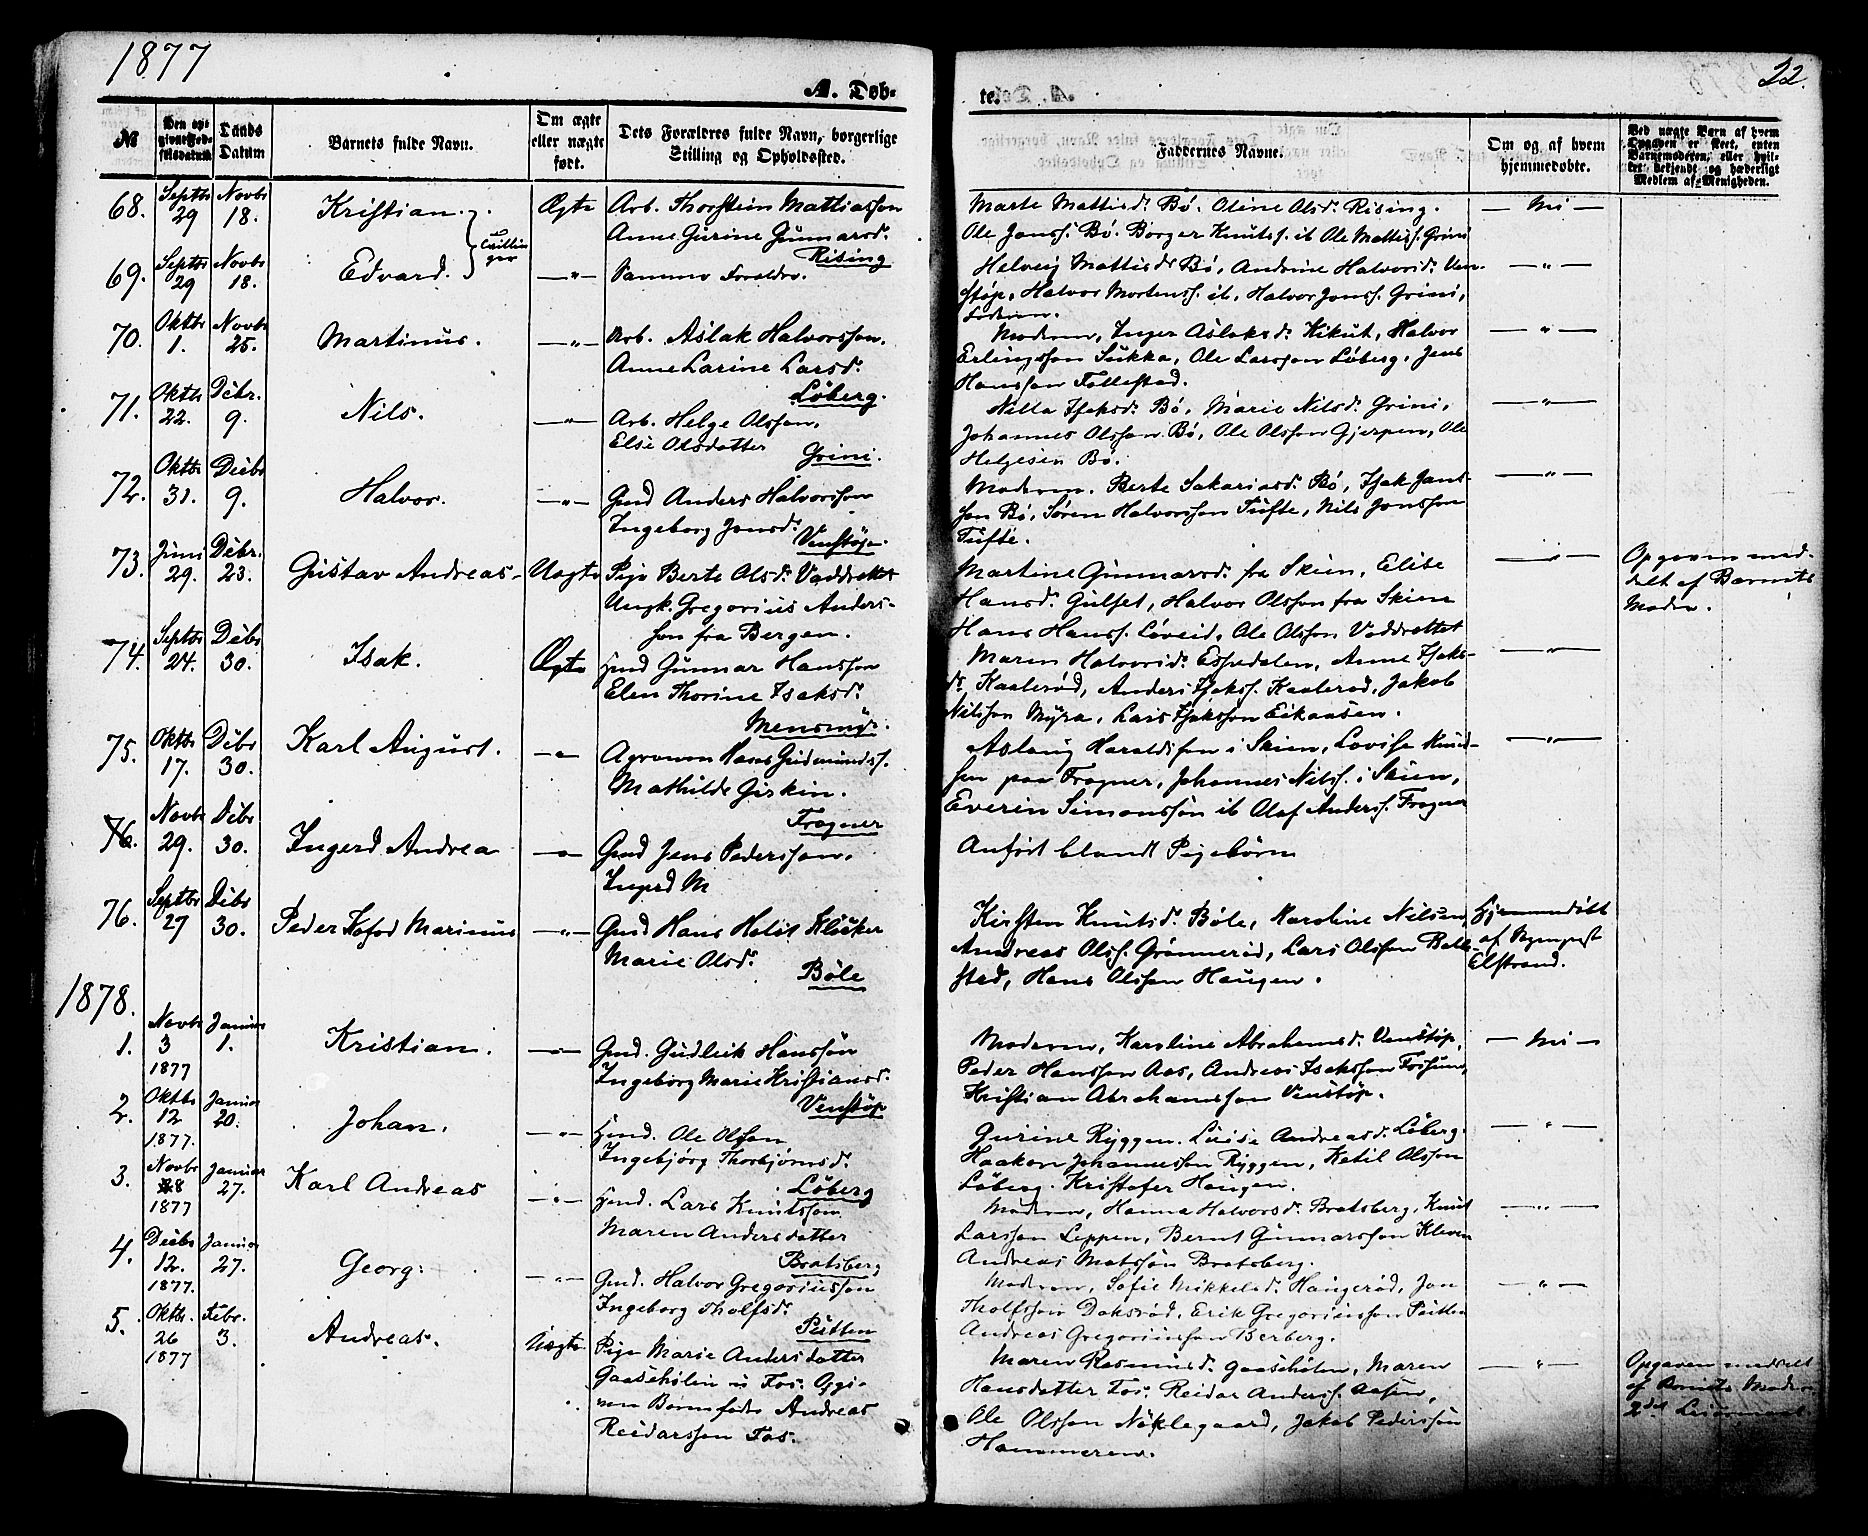 1877
22.
A. Døb-
te.
№
Den opgivne Fødselsdatum
Daabs Datum
Barnets fulde Navn.
Om ægte eller uægte født.
Dets Forældres fulde Navn, borgerlige Stilling og Opholdssted.
Faddernes Navne.
Om og af hvem hjemmedøbte.
Ved uægte Barn af hvem Opgaven er skeet, enten Barnemoderen, eller hvilket bekjendt og hæderligt Medlem af Menigheden.
68. Septbr 29 Novbr 18. Kristian. Ægte Arb. Thorstein Mattiasson
Anne Gurine Gunnarsd.
Rising
Marte Mattisd. Bø. Oline Olsd. Rising.
Ole Jonss. Bø. Borger Knutss. ib Ole Mattiss. Grini
— Nei —
Tvillinger
69. Septbr 29 Novbr 18. Edvard. —"— Samme Forældre.
Helvig Mattisd. Bø, Andrine Halvorsd. Ven-
støp, Halvor Mortenss. ib, Halvor Jonss. Grini,
Faderen.
—"—
70. Oktbr 1. Novbr 25. Martinus. —"— Arb. Aslak Halvorsson.
Anne Larine Larsd.
Løberg.
Moderen, Inger Aslaksd. Kikut, Halvor
Erlingsson Sukka, Ole Larsson Løberg, Jens
Hansson Follestad.
—"—
71. Oktbr 22. Debr. 9. Nils. —"— Arb. Helge Olsson,
Else Olsdatter
Grini.
Nilla Isaksd. Bø, Marie Nilsd. Grini,
Johannes Olsson Bø, Ole Olsson Gjerpen, Ole
Helgesen Bø.
—"—
72. Oktbr 31. Decbr 9. Halvor. —"— Gmd Anders Halvorsson
Ingeborg Jonsd.
Venstøp.
Moderen. Berte Sakariasd. Bø, Isak Jans-
son Bø, Søren Halvorsson Tufte, Nils Jonsson
Tufte.
—"—
73. Juni 29. Debr. 23. Gustav Andreas. Uægte Pige Berte Olsd. Vaddrettet
Ungk. Gregorius Anders-
son fra Bergen.
Martine Gunnarsd. fra Skien, Elise
Hansd. Gulset, Halvor Olsson fra Skien
Hans Hanss. Løveid, Ole Olsson Vaddrettet
—"—
Opgaven med-
delt af Barnets
Moder.
74. Septbr 24. Debr 30. Isak. Ægte Gmd Gunnar Hansson
Elen Thorine Isaksd.
Mensmyr.
Maren Halvorsd. Espedalen, Anne Isaks-
d. Kaalerød, Anders Isakss. Kaalerød, Jakob
Nilsson Myra, Lars Isaksson Eikaasen.
—"—
75. Oktbr 17. Debr 30. Karl August. —"— Agronom Hans Gudmundss.
Mathilde Giskin.
Frogner
Aslaug Haraldssen i Skien, Lovise Knud-
sen paa Frogner, Johannes Nilss. i Skien,
Everin Simonsson ib Olaf Anderss. Frogner
—"—
76. Novbr 29. Debr 30. Ingerd Andrea —"— Gmd Jens Pedersson.
Ingrd M
Anført blandt Pigebørn
76. Septbr 27 Debr 30. Peder Kofod Marinus —"— Gmd Hans Holst Klücker
Marie Olsd.
Bøle
Kirsten Knutsd. Bøle, Karoline Nilsen,
Andreas Olss. Grønnerød, Lars Olsson Bøle-
sted, Hans Olsson Haugen.
Hjemmedøbt
af
Elstrand.
1878.
1. Novbr 3 1877 Januar 1. Kristian. —"— Gmd. Gudleik Hansson
Ingeborg Marie Kristiansd.
Venstøp
Moderen, Karoline Abrahamsd. Venstøp,
Peder Hansson Aas, Andreas Isaksson Fossum,
Kristian Abrahamsson Venstøp.
— Nei —
2. Oktbr 12 1877. Januar 20. Johan. —"— Gmd. Ole Olsson
Ingebjørg Thorbjørnsd.
Løberg
Gurine Ryggen. Luise Andreasd. Løberg.
Haakon Johannesson Ryggen, Ketil Olsson
Løberg. Kristofer Haugen.
—"—
3. Novbr 28 1877 Januar 27. Karl Andreas —"— Gmd. Lars Knutsson
Maren Andersdatter
Bratsberg
Moderen, Hanna Halvorsd. Bratsberg, Knut
Larsson Leppen, Bernt Gunnarsson Kleven
Andreas Matsson Bratsberg.
—"—
4. Decbr 12. 1877. Januar 27. Georg. —"— Gmd. Halvor Gregoriusson
Ingeborg Tholfsd.
Putten
Moderen, Sofie Mikkelsd. Haugerød, Jon
Tholfsson Doksrød, Erik Gregoriusson Putten
Andreas Gregoriusson Berberg.
—"—
5. Oktbr. 26 1877 Febr. 3. Andreas. Uægte Pige Marie Andersdatter
Gaaseholen u. Fos. Opgi-
ven Barnefader Andreas
Reidarsson Fos.
Maren Rasmusd. Gaaseholen, Maren
Hansdatter Fos. Reidar Anderss. Aasen,
Ole Olsson Nøklegaard, Jakob Pedersson
Hammeren.
—"—
Opgaven meddelt
af Barnets Moder
2det Leiermaal